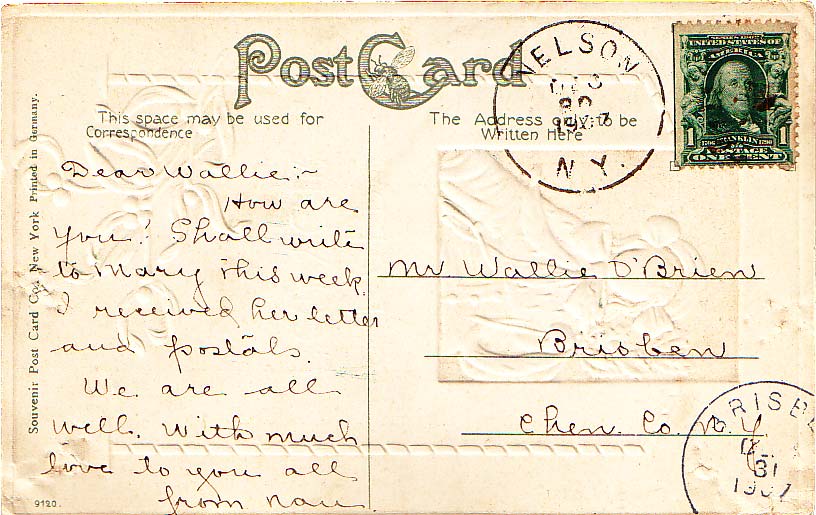 Post Card
This space may be used for
Correspondence
The Address only to be
Written Here
NELSON
DEC
30
1907
N.Y.
SERIES 1902
UNITED STATES OF
AMERICA
1 1706 FRANKLIN 1790 1
POSTAGE
ONE CENT
Souvenir Post Card Co., New York Printed in Germany.
Dear Wallie:-
How are
you? Shall write
to Mary this week.
I received her letter
and postals.
We are all
well. With much
love to you all
from Nan
Mr Wallie O'Brien
Brisben
Chen. Co. N.Y.
BRISBE
31
1907
9120.